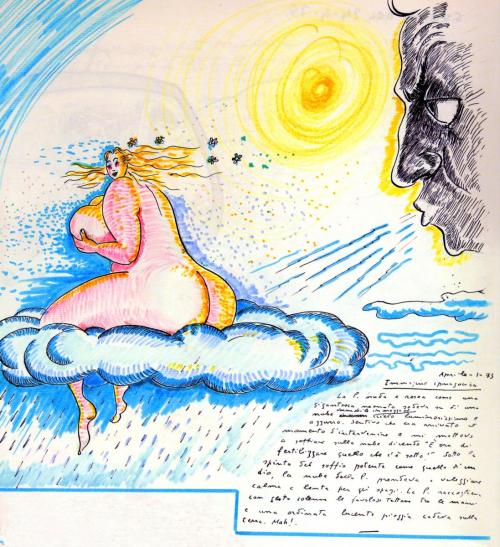 Aprile
Immagine ipnagogica
La P. nuda e rosea come una
gigantessa neonata sedeva su di una
nube in mezzo al cielo luminosissimo e
azzurro. Sentivo che era arrivato il
momento d'intervenire e mi mettevo
a soffiare sulla nube dicendo "È ora di
fertilizzare quello che c'è sotto" Sotto la
spinta del soffio potente come quello di un
dio, la nube della P. prendeva a veleggiare
calma e lenta per gli spazi. La P. raccoglieva
con gesto solenne le favolose tettone tra le mani
e una ordinata lucente pioggia cadeva sulla
terra. Mah!